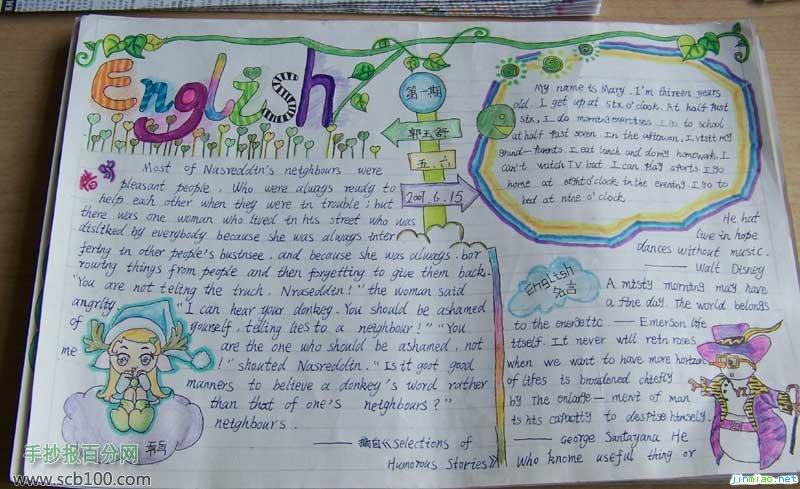 English
第一期
郭玉舒
五.六
2007.6.15
Most of Nasreddin's neighbours were
pleasant people. Who were always ready to
help each other when they were in trouble; but
there was one woman who lived in his street who was
disliked by everybody because she was always inter
fering in other people's business. and because she was always. bor
rowing things from people and then forgetting to give them back.
"You are not telling the truch, Nraseddin!" the woman said
angrlity "I can hear your donkey. You should be ashamed
of yourself, telling lies to a neighbour!" "You
me are the one who should be ashamed, not
!" shouted Nasreddin. "Is it goot good
manners to believe a donkey's word rather
than that of one's neighbours?"
neighbours.
—— 摘自《Selections of
Humorous Stories》
My name is Mary. I'm thireen years
old. I get up at six o'clock. At half past
six, I do morning exercises I go to school
at half past seven. In the aftowen, I visit my
grand-parents. I eat lunch and do my homework. I
can't watch TV but I can play sports. I go
home at eight o'clock in the evening. I go to
bed at nine o'clock.
He hat
live in hope
dances without music.
—— Walt Disney
English
名言
A misty morning may have
a fine day. The world belongs
to the energetic —— Emerson life
itself. It never will retn roses
when we want to have more horizon
of lifes is broadened chiefly
by the enlarge—ment of man
is his capacity to despise himself.
—— George Santayanu He
who knome useful thing or
手抄报百分网
www.scb100.com
jinmiao.net